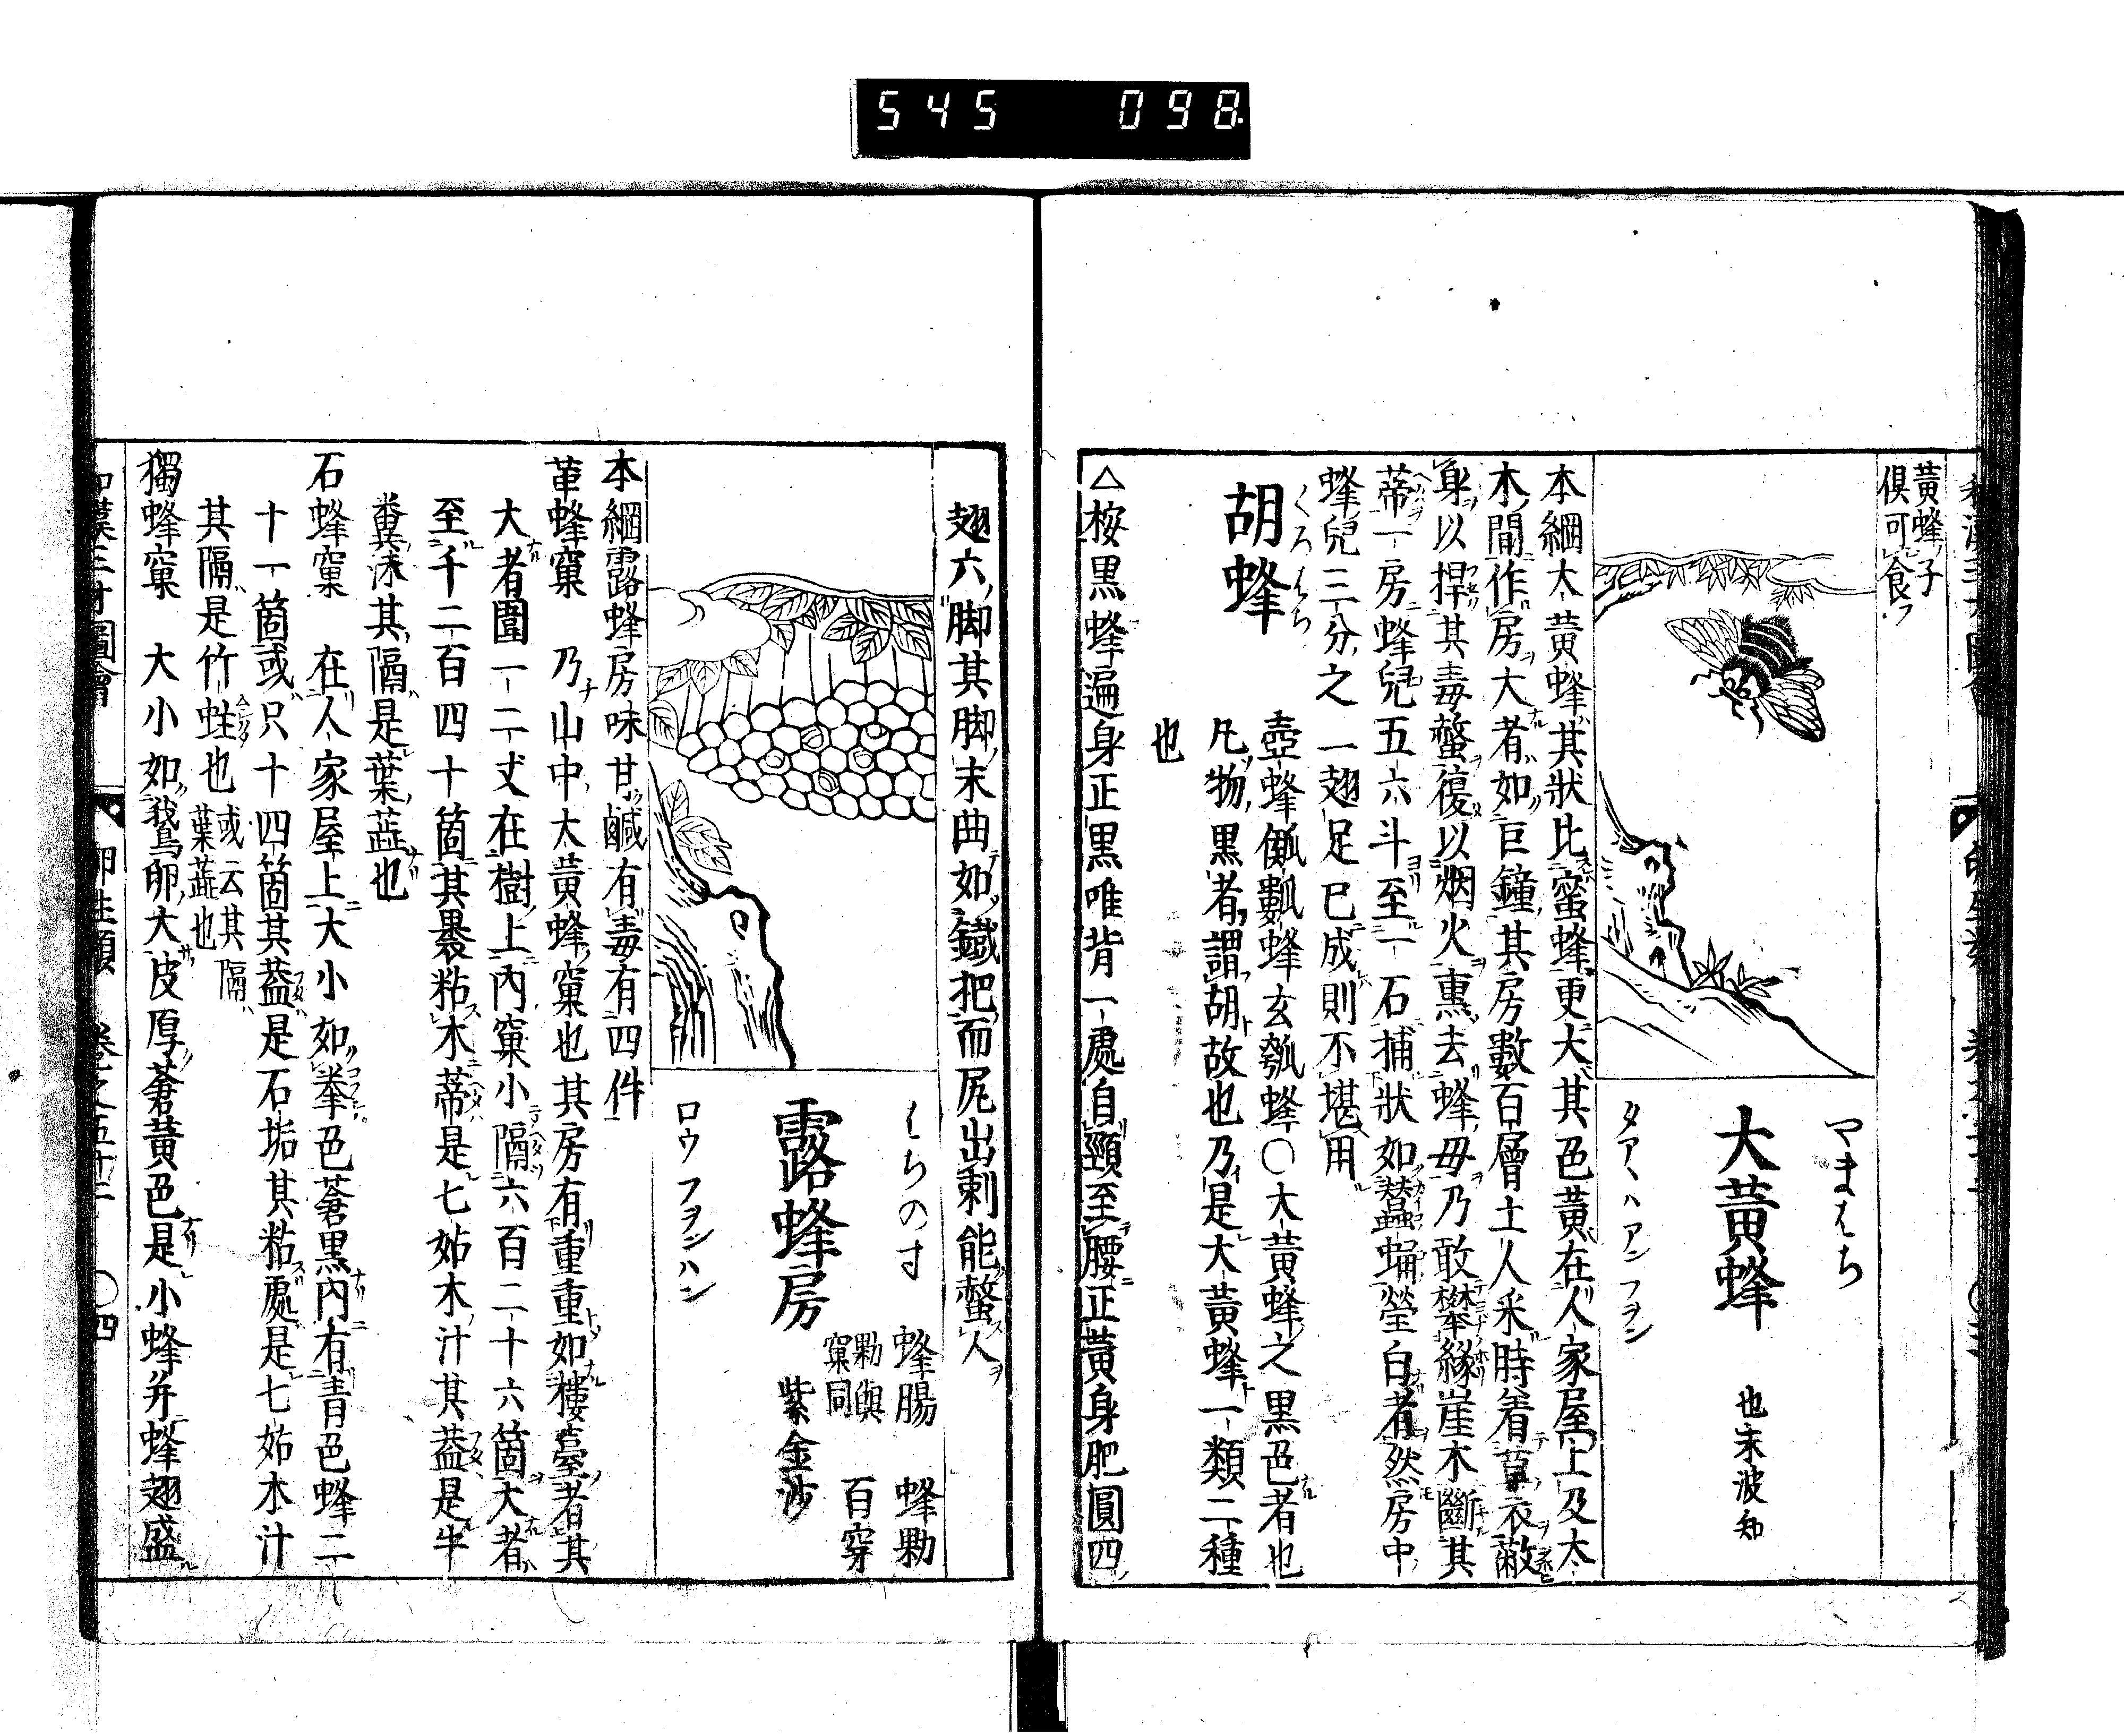 545 098
黃蜂子
俱可食
やまばち
大黃蜂
也末波知
タアヽハアンフヲン
本綱大黃蜂其狀比蜜蜂更大其色黃在人家屋上及大
木間作房大者如巨鐘其房數百層土人采時着草衣蔽
身以捍其毒螫復以烟火熏去蜂母乃敢攀緣崖木斷其
蒂一房蜂兒五六斗至一石捕狀如蠶蛹瑩白者然房中
蜂兒三分之一翅足已成則不堪用
くろばち
胡蜂
壺蜂 瓠𤬛蜂 玄瓠蜂○大黃蜂之黒色者也
凡物黒者謂胡故也乃是大黃蜂一類二種
也
△桉黒蜂遍身正黒唯背一處自頸至腰正黃身肥圓四
翅六脚其脚末曲如鐵把而尻出剌能螫人
はちのす
露蜂房
ロウフヲンハン
蜂腸 蜂𠞰
𠞰與
窠同
百穿
紫金沙
本綱露蜂房味甘鹹有毒有四件
革蜂窠 乃山中大黃蜂窠也其房有重重如樓臺者其
大者圍一二丈在樹上內窠小隔六百二十六箇大者
至千二百四十箇其褁粘木蒂是七姑木汁其葢是牛
糞沫其隔是葉蘂也
石蜂窠 在人家屋上大小如拳色蒼黒內有青色蜂二
十一箇或只十四箇其葢是石垢其粘處是七姑木汁
其隔是竹蛀也
或云其隔
葉蘂也
獨蜂窠 大小如鵞卵大皮厚蒼黃色是小蜂并蜂翅盛
和漢三才圖會 卵生類 卷之五十二 ○四